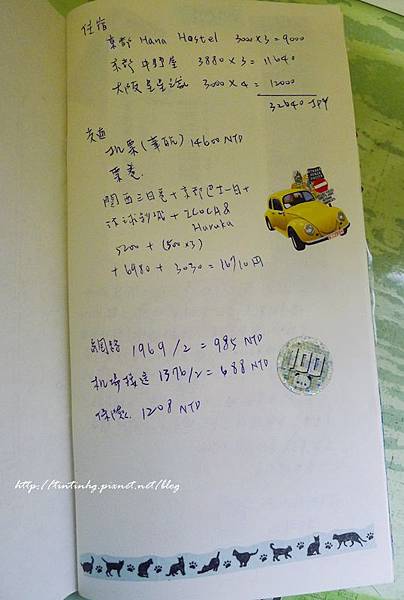 住宿
京都 Hana Hostel 3000×3=9000
京都 3880×3=11640
大阪 3000×4=12000
32640 JPY
交通
机票(華航) 14600 NTD
票卷.
関西三日卷+京都巴士一日+
环球影城+ICOCA&
Haruka
5200+(500×3)
+6980+3030=16710円
網路 1969/2=985 NTD
机場接送 1376/2=688 NTD
保險. 1208 NTD
100
http://tintinhg.pixnet.net/blog